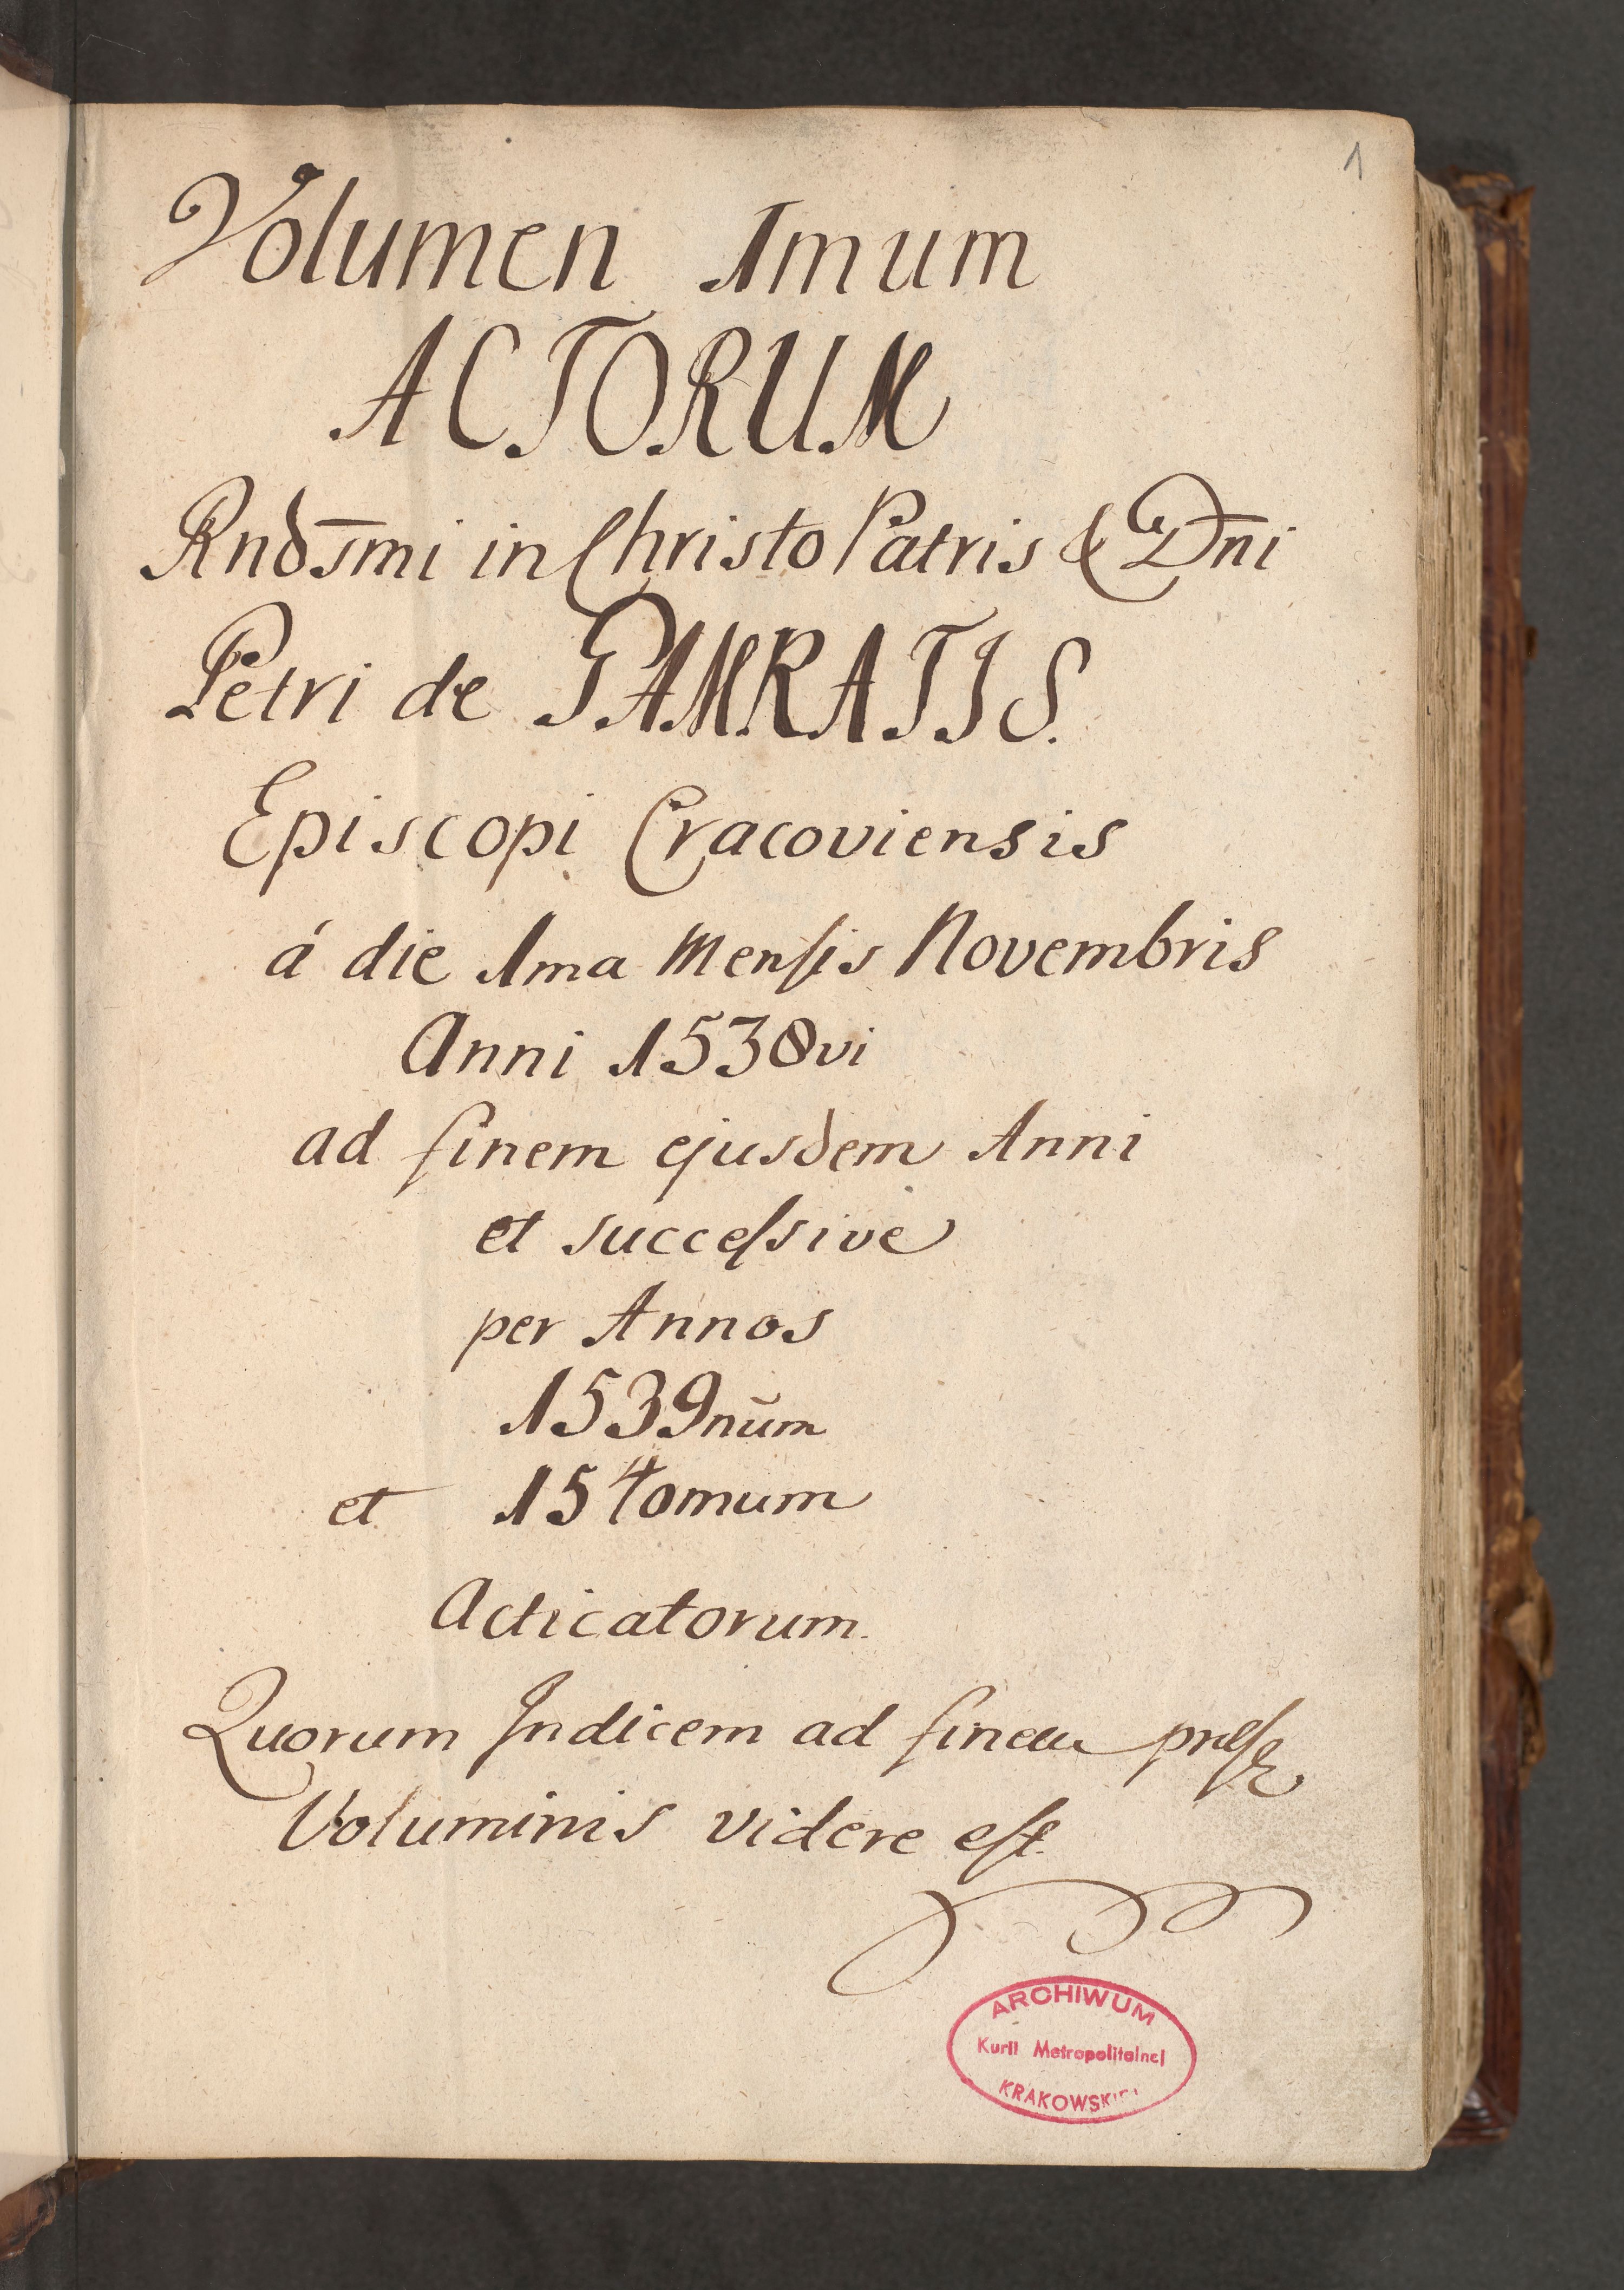 1
Volumen 1mum
ACTORUM
Rndīmi in Christo Patris & Dni
Petri de GAMRATIS.
Episcopi Cracoviensis
á die 1ma Mensis Novembris
Anni 1538vi
ad finem ejusdem Anni
et successive
per Annos
1539num
et 1540mum
Acticatorum.
Quorum Indicem ad finem
Voluminis videre est.
ARCHIWUM
Kurii Metropolitalnej
KRAKOWSKIEJ